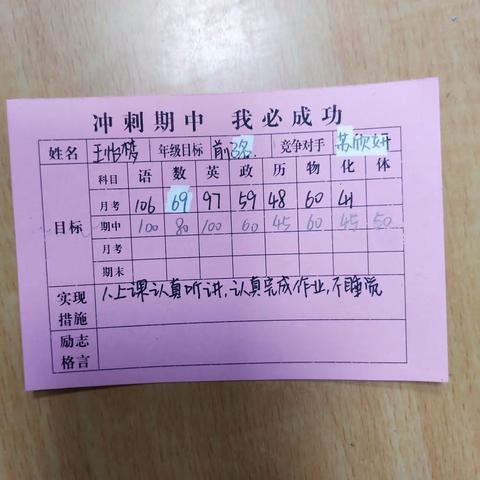 冲刺期中 我必成功
姓名 王怡梦 年级目标 前 名 竞争对手 苏欣妍
目标 科目 语 数 英 政 历 物 化 体
月考 106 69 97 59 48 60 41
期中 100 80 100 60 45 60 45 50
月考
期末
实现措施 1.上课认真听讲,认真完成作业,不睡觉
励志格言